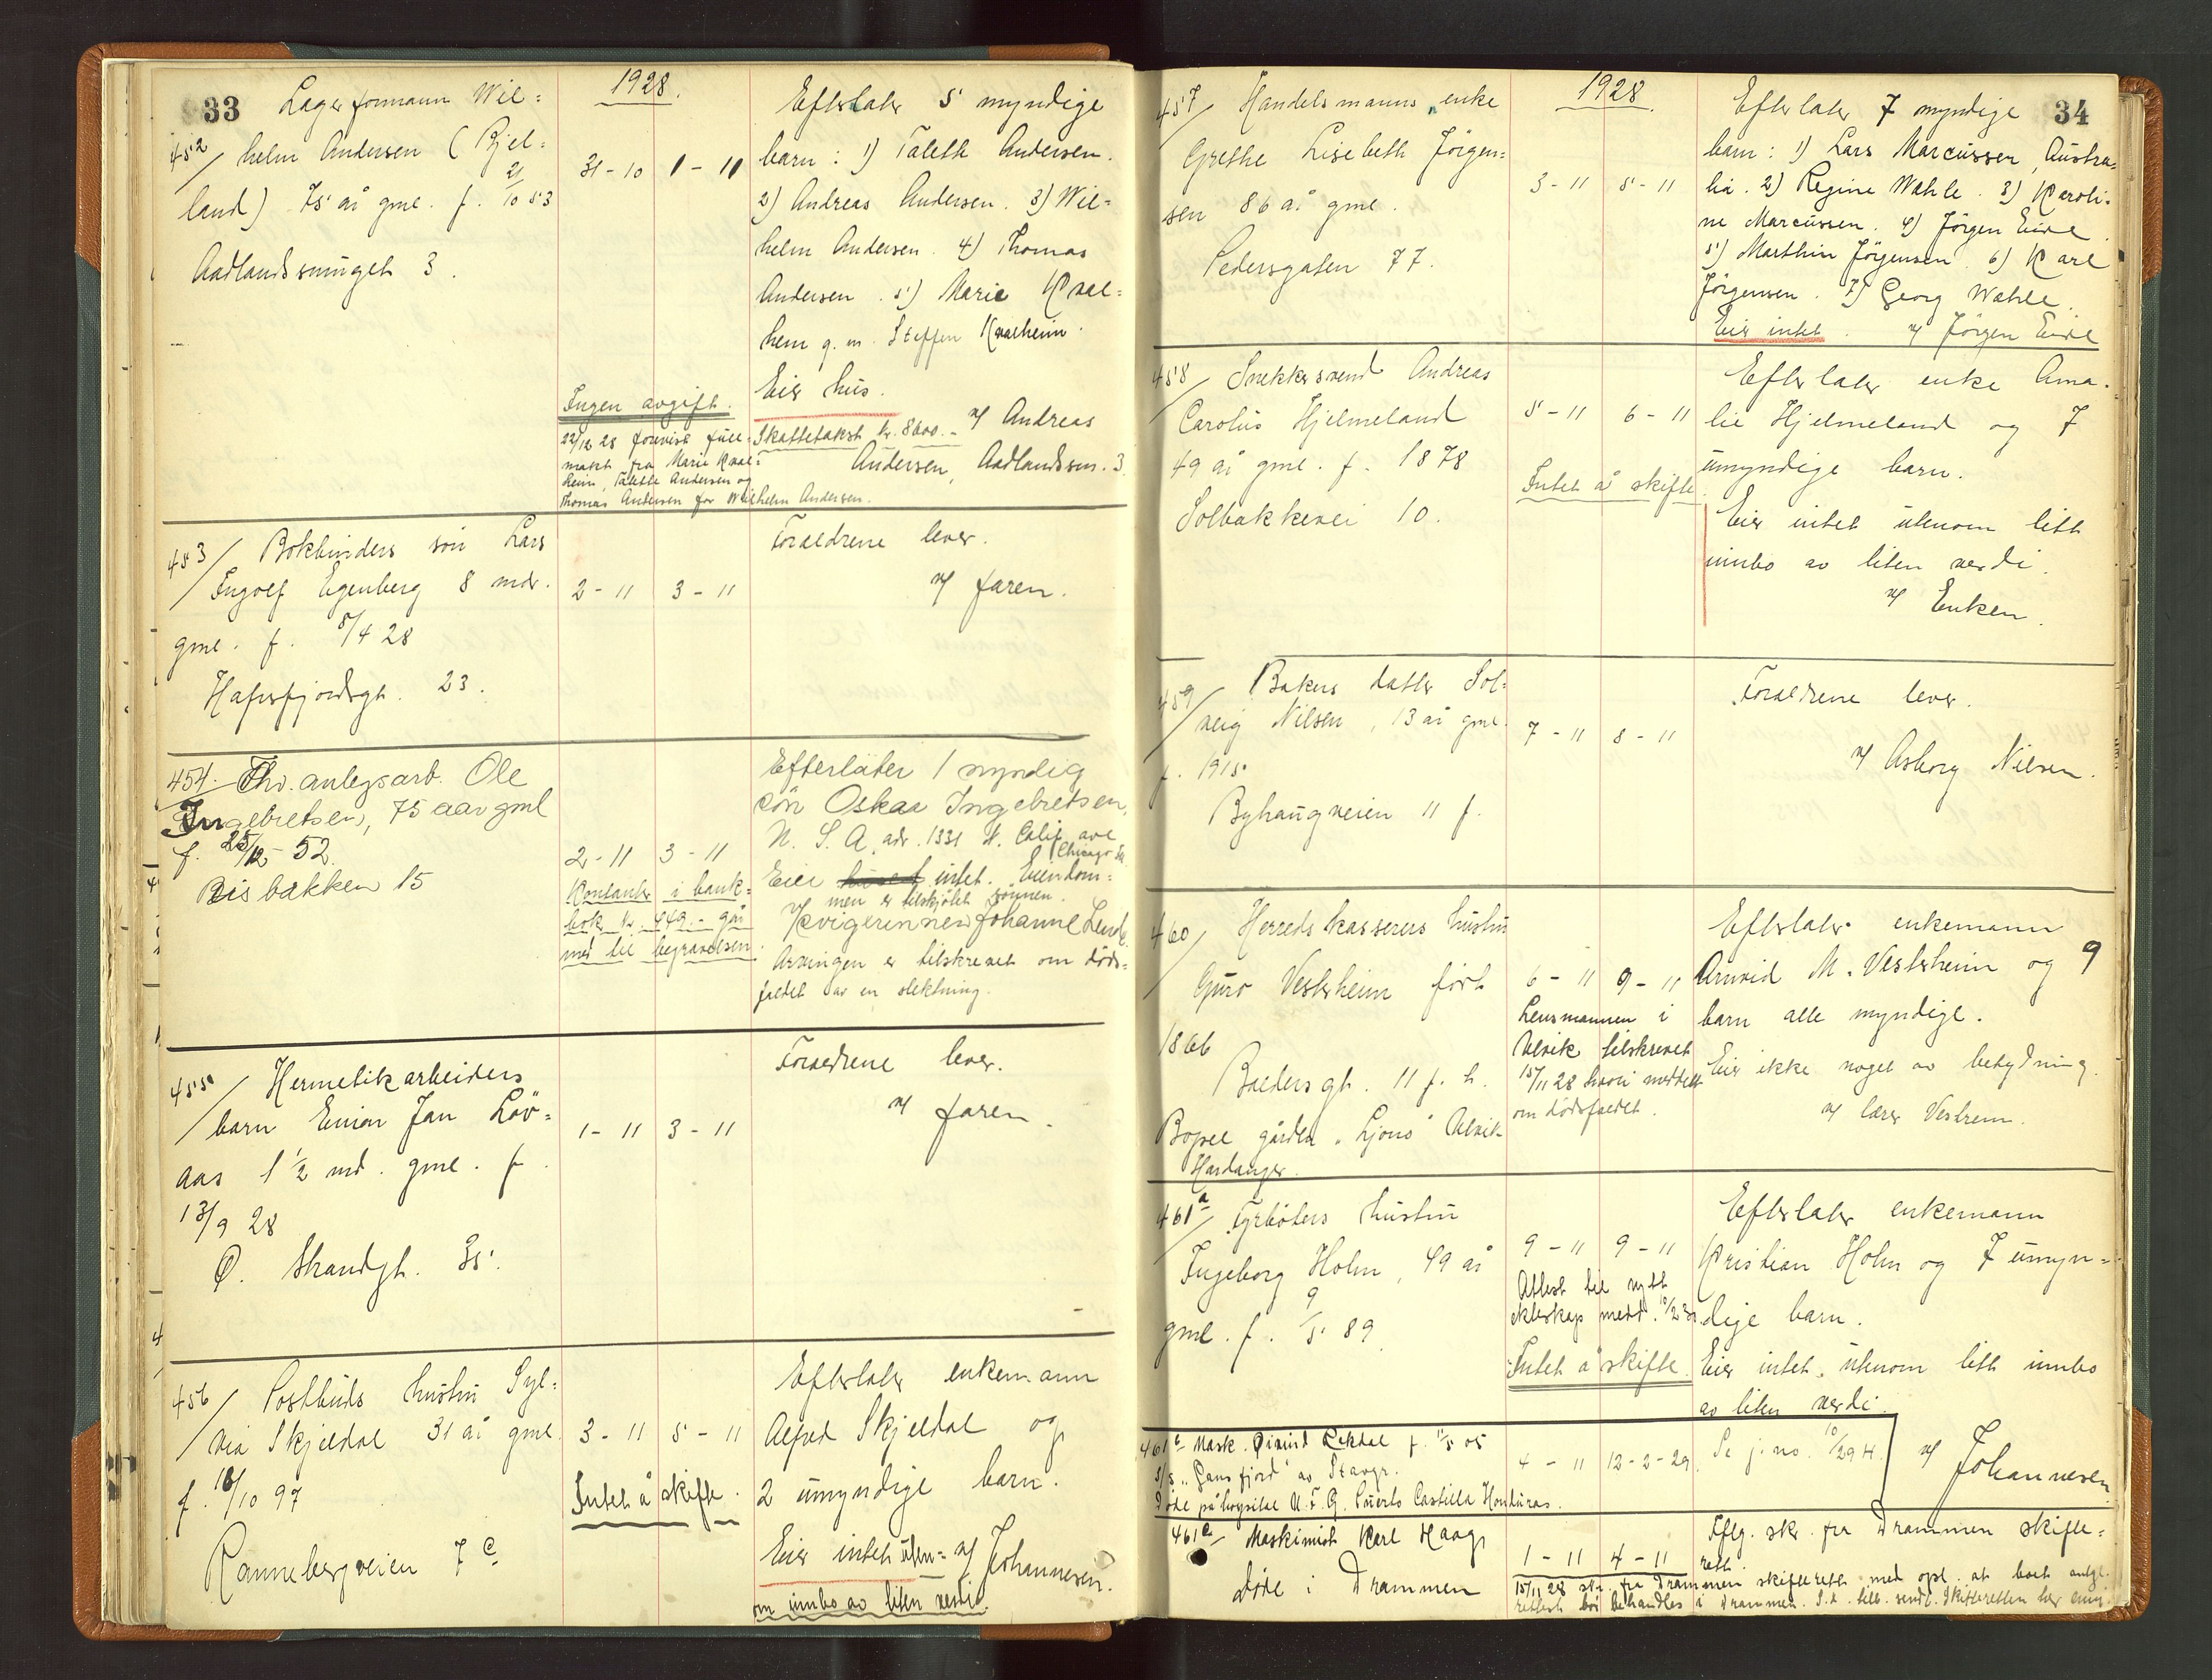 33
1928.
452/ Lagerformann Wil=
helm Andersen (Bjel=
land) 75 år gml. f. 21/10 53
Aadlandssmuget 3.
31-10 1-11
Efterlater 5 myndige
barn: 1) Taleth Andersen.
2) Andreas Andersen. 3) Wil=
helm Andersen. 4) Thomas
Andersen. 5) Marie Kval=
heim g.m. Steffen Kvalheim.
Eier hus.
Skattetakst kr. 8600.- v/ Andreas
Andersen, Aadlandssm. 3.
Ingen avgift.
22/12 28 forevist full=
makt fra Marie Kval=
heim, Talette Andersen og
Thomas Andersen for Wilhelm Andersen.
453/ Bokbinders sön Lars
Ingolf Egenberg 8 mdr.
gml. f. 5/4 28
Hafrsfjordsgt. 23.
2-11 3-11
Foreldrene lever.
v/ faren.
454. Fhv. anlegsarb. Ole
Ingebretsen, 75 aar gml
f. 25/12-52.
Bisbakken 15
2-11 3-11
Kontanter i bank=
bok kr. 449.- går
med til begravelsen.
Efterlater 1 myndig
sön Oskar Ingebretsen,
U. S. A. adr. 1331 N. Calif. ave
Chicago
Eier huset intet. Eiendom=
men er tilskjötet sönnen.
v/ Svigerinnen Johanne Lende.
Arvingen er tilskrevet om döds=
faldet av en slektning.
455/ Hermetikarbeiders
barn Einar Jan Löv=
aas 1 1/2 md. gml. f.
13/9 28
Ø. Strandgt. 35.
1-11 3-11
Foreldrene lever.
v/ faren.
456/ Postbuds hustru Syl=
via Skjeldal 31 år gml.
f. 16/10 97
Rannebergveien 7 c
3-11 5-11
Intet å skifte.
Efterlater enkemann
Alfred Skjeldal og
2 umyndige barn.
Eier intet uten= v/ Johannesen.
om innbo av liten verdi.
34
1928.
457/ Handelsmanns enke
Grethe Lisebeth Jörgen=
sen 86 år gml.
Pedersgaten 77.
3-11 5-11
Efterlater 7 myndige
barn: 1) Lars Marcussen, Austra=
lia. 2) Regine Wahle. 3) Karoli=
ne Marcussen. 4) Jörgen Eide.
5) Marthin Jörgensen. 6) Karl
Jörgensen. 7) Georg Wahle.
Eier intet. v/ Jörgen Eide
458/ Snekkersvend Andreas
Carolus Hjelmeland
49 år gml. f. 1878
Solbakkevei 10.
5-11 6-11
Intet å skifte.
Efterlater enke Ama=
lie Hjelmeland og 7
umyndige barn.
Eier intet utenom litt
innbo av liten verdi.
v/ Enken.
459/ Bakers datter Sol=
veig Nilsen, 13 år gml.
f. 1915.
Byhaugveien 11 f.
7-11 8-11
Foreldrene lever.
v/ Asborg Nilsen.
460/ Herredskasserers hustru
Guro Vesterheim född
1866
Baldersgt. 11 f. h.
Bopel gården "Ljono" Ulvik
Hardanger.
6-11 9-11
Lensmannen i
Ulvik tilskrevet
15/11 28 hvori meddelt
om dödsfaldet.
Efterlater enkemann
Arnvid M. Vesterheim og 9
barn alle myndige.
Eier ikke noget av betydning.
v/ lærer Vestrem.
461a/ Fyrböters hustru
Ingeborg Holm, 49 år
gml. f. 9/5 89
9-11 9-11
Attest til nytt
ekteskap medd. 10/2 30.
Intet å skifte.
Efterlater enkemann
Kristian Holm og 7 umyn=
dige barn.
Eier intet, utenom litt innbo
av liten verdi.
v/ Johannesen
461b Mask. Øivind Rekdal f. 11/5 05
S/S "Gansfjord" av Stavgr.
Döde på hospital U. F. C. Puerto Castilla Honduras.
4-11 12-2-29
Se j. no. 10/29 H.
461c/ Maskinist Karl Haag,
döde i Drammen
1-11 4-11
Iflg. skr. fra Drammen skifte=
rett.
15/11 28 skr. fra Drammen skifterett med opl. at boet antgl.
rettest bör behandles i Drammen. S.d. tilb. sendt. Skifteretten her enig.